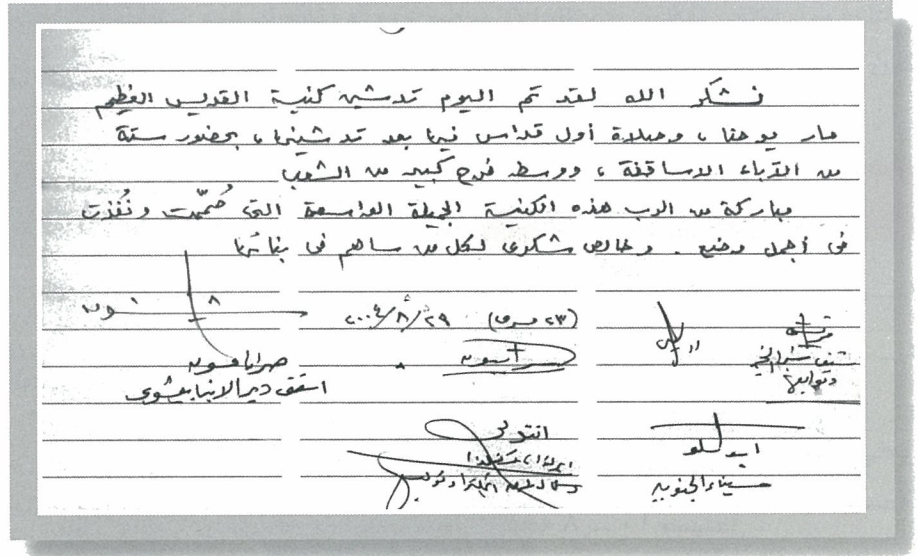 نشكر الله لقد تم اليوم تدشين كنيسة القديس العظيم
مار يوحنا، وصلاة أول قداس فيها بعد تدشينها، بحضور ستة
من الآباء الاساقفة، ووسط فرح كبير من الشعب
مباركة من الرب هذه الكنيسة الجميلة الواسعة التى صُممت ونُفذت
فى أجمل وضع. وخالص شكرى لكل من ساهم فى بنائها
(٢٣ مسرى) ٢٩/٨/٢٠٠٤
صرابامون
اسقف دير الانبا بيشوى
سرابيون
مرقس
اسقف شبرا الخيمة
وتوابعها
انتونى
ابوللو
سيناء الجنوبية